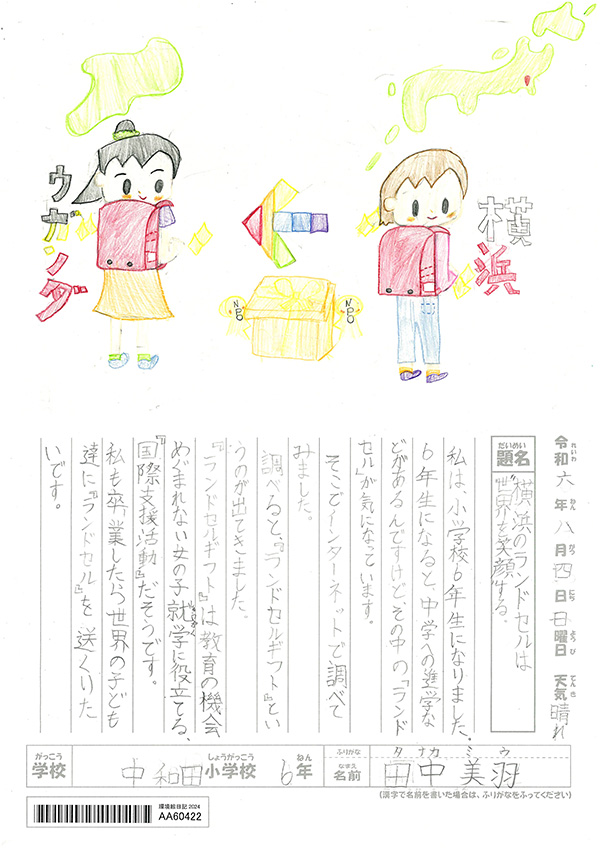 横浜
ウガンダ
NPO
NPO
令和六年八月四日日曜日 天気 晴れ
れいわ ねん がつ にち ようび てんき
だいめい
題名
"横浜のランドセルは
世界を笑顔にする。
私は、小学校6年生になりました。
6年生になると、中学への進学な
どがあるんですけど、その中の『ランド
セル』が気になっています。
そこでインターネットで調べて
みました。
調べると、『ランドセルギフト』とい
うのが出てきました。
『ランドセルギフト』は教育の機会
めぐまれない女の子就学に役立てる、
しゅうがく
『国際支援活動』だそうです。
私も卒業したら世界の子ども
達に『ランドセル』を送くりた
いです。
がっこう
学校
中和田
しょうがっこう
小学校
6
ねん
年
ふりがな
タナカ ミウ
なまえ
名前
田中美羽
(漢字で名前を書いた場合は、ふりがなをふってください)
環境絵日記 2024
AA60422